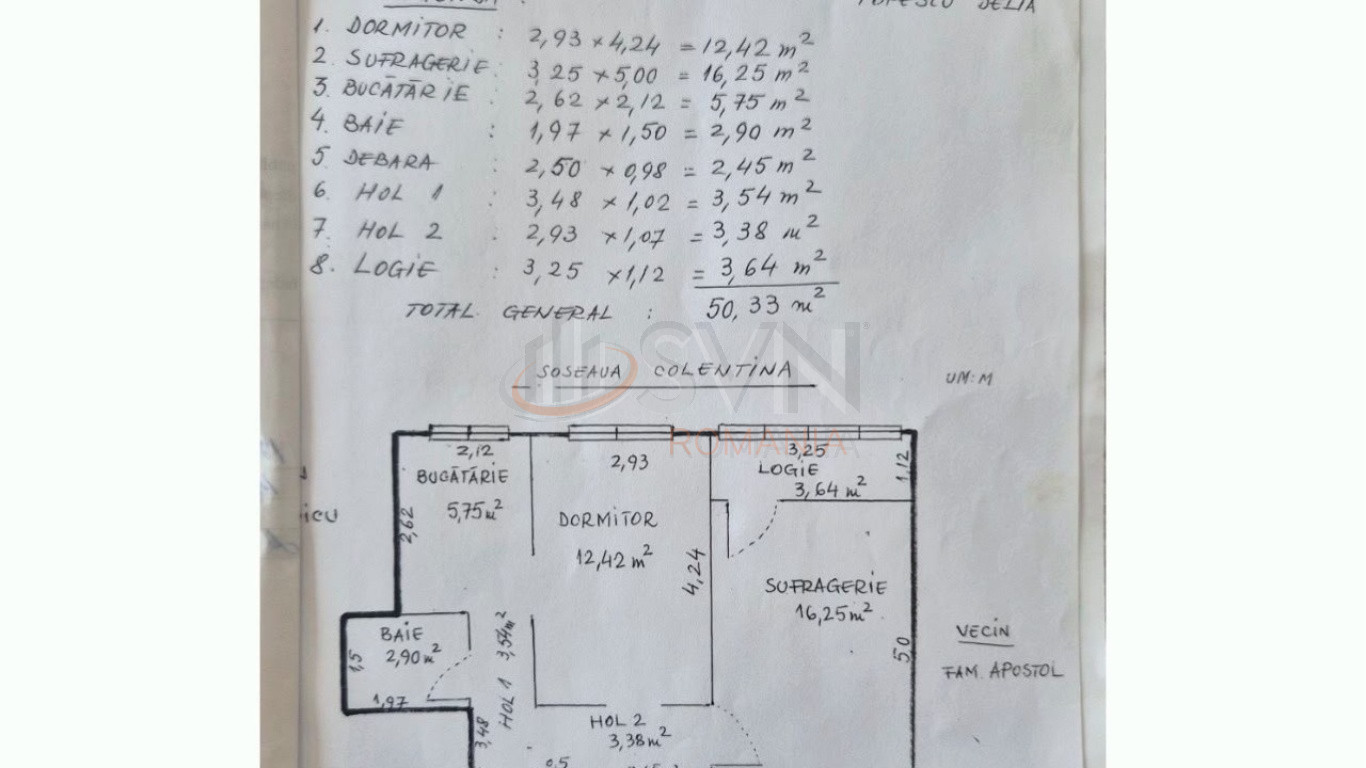 POPESCU DELIA
1. DORMITOR : 2,93 x 4,24 = 12,42 m²
2. SUFRAGERIE : 3,25 x 5,00 = 16,25 m²
3. BUCĂTĂRIE : 2,62 x 2,12 = 5,75 m²
4. BAIE : 1,97 x 1,50 = 2,90 m²
5 DEBARA : 2,50 x 0,98 = 2,45 m²
6. HOL 1 : 3,48 x 1,02 = 3,54 m²
7. HOL 2 : 2,93 x 1,07 = 3,38 m²
8. LOGIE : 3,25 x 1,12 = 3,64 m²
TOTAL GENERAL : 50,33 m²
SVN
ROMANIA
SOSEAUA COLENTINA
UM: M
2,12
2,93
3,25
BUCĂTĂRIE
LOGIE
1,12
5,75 m²
3,64 m²
2,62
DORMITOR
12,42 m²
4,24
SUFRAGERIE
16,25 m²
BAIE
2,90 m²
1,5
1,97
HOL 1 3,54 m²
3,48
50
VECIN
FAM. APOSTOL
HOL 2
3,38 m²
0,5